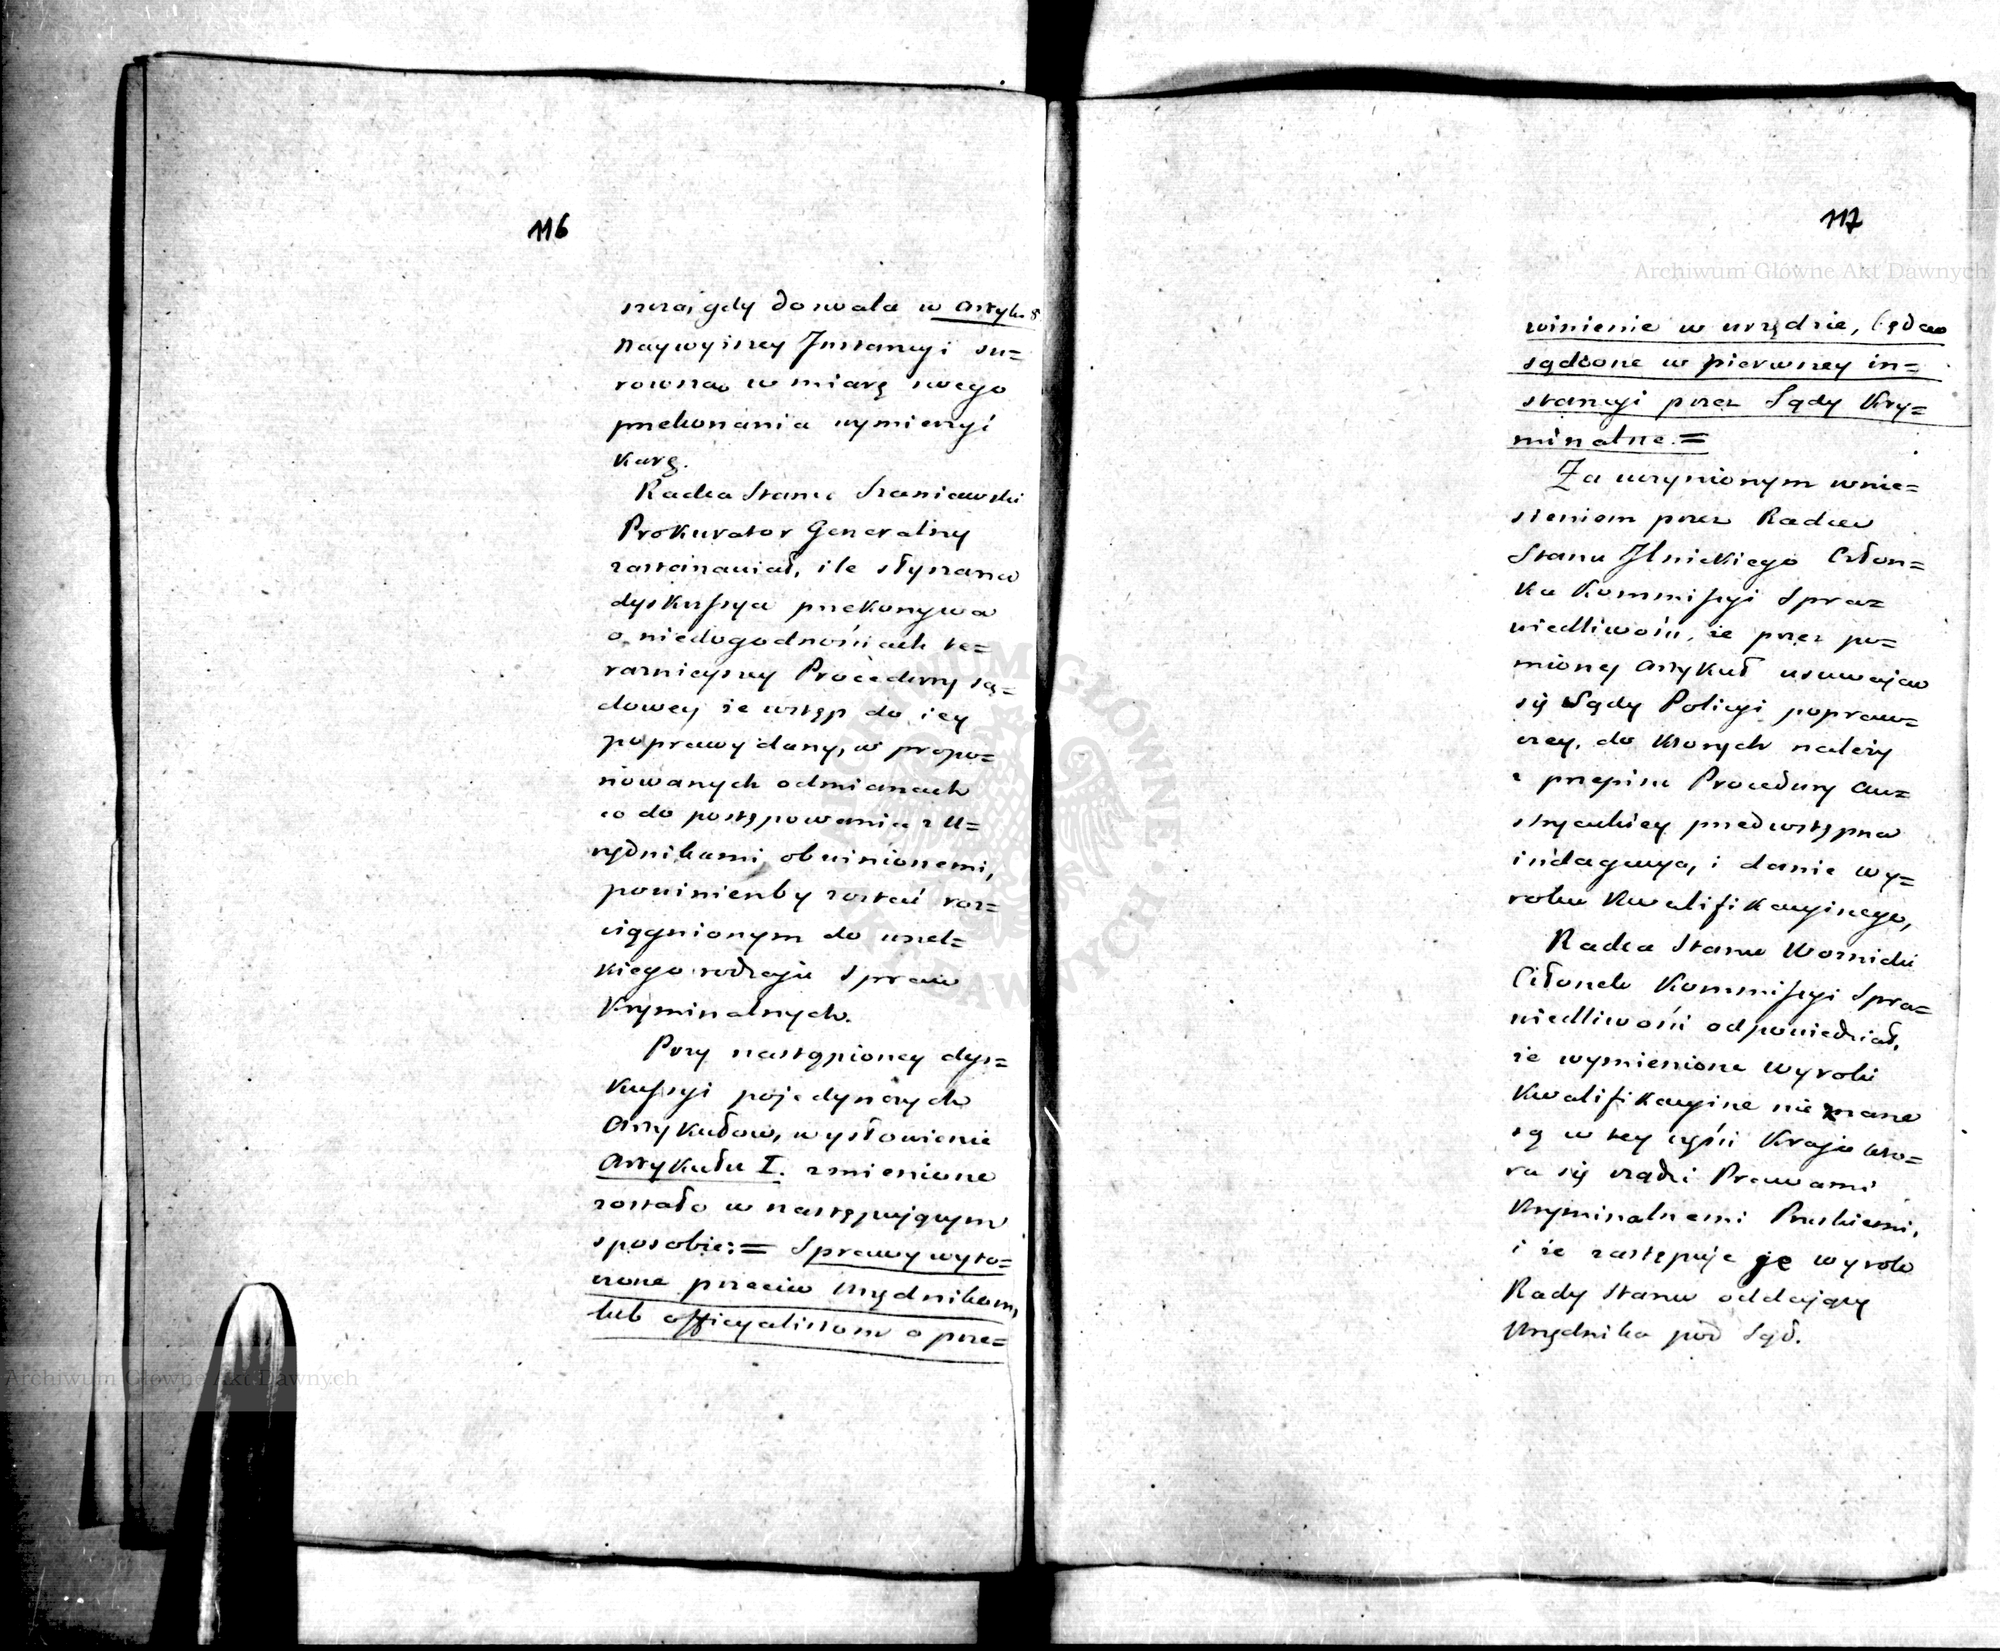 116
gdy dozwala w Artyk. 8
naywyższey Instancyi su=
rowszą w miarę swego
przekonania wymierzyć
karę.
Radca Stanu Szaniawski
Prokurator Generalny
zastanawiał, ile słyszana
dyskussya przekonywa
o niedogodnościach te=
raznieyszey Procedury są=
dowey że wstęp do iey
poprawy dany, w propo=
nowanych odmianach
co do postępowania z U=
rzędnikami obwinionemi,
powinienby zostać roz=
ciągnionym do wszel=
kiego rodzaju Spraw
Kryminalnych.
Przy nastąpioney dys=
kussyi pojedynczych
Artykułow, wysłowienie
Artykułu I. zmienione
zostało w następującym
sposobie: = Sprawy wyto=
czone przeciw Urzędnikom,
lub officyalistom o prze=
117
Archiwum Główne Akt Dawnych
winienie w urzędzie, będą
sądzone w pierwszey in=
stancyi przez Sądy Kry=
minalne. =
Za uczynionym wnie=
sieniem przez Radcę
Stanu Ilnickiego Człon=
ka Kommissyi Spra=
wiedliwości, że przez po=
mioney Artykuł usuwają
się Sądy Policyi popraw=
czey, do ktorych należy
z przepisu Procedury Au=
stryackiey przedwstępna
indagacya, i danie wy=
roku kwalifikacyinego,
Radca Stanu Woznicki
Członek Kommissyi Spra=
wiedliwości odpowiedział,
że wymienione wyroki
kwalifikacyine nie znane
są w tey części Kraju kto=
ra się rządzi Prawami
Kryminalnemi Pruskiemi,
i że zastępuje je wyrok
Rady Stanu oddający
Urzędnika pod Sąd.
Archiwum Główne Akt Dawnych
ARCHIWUM GŁÓWNE AKT DAWNYCH